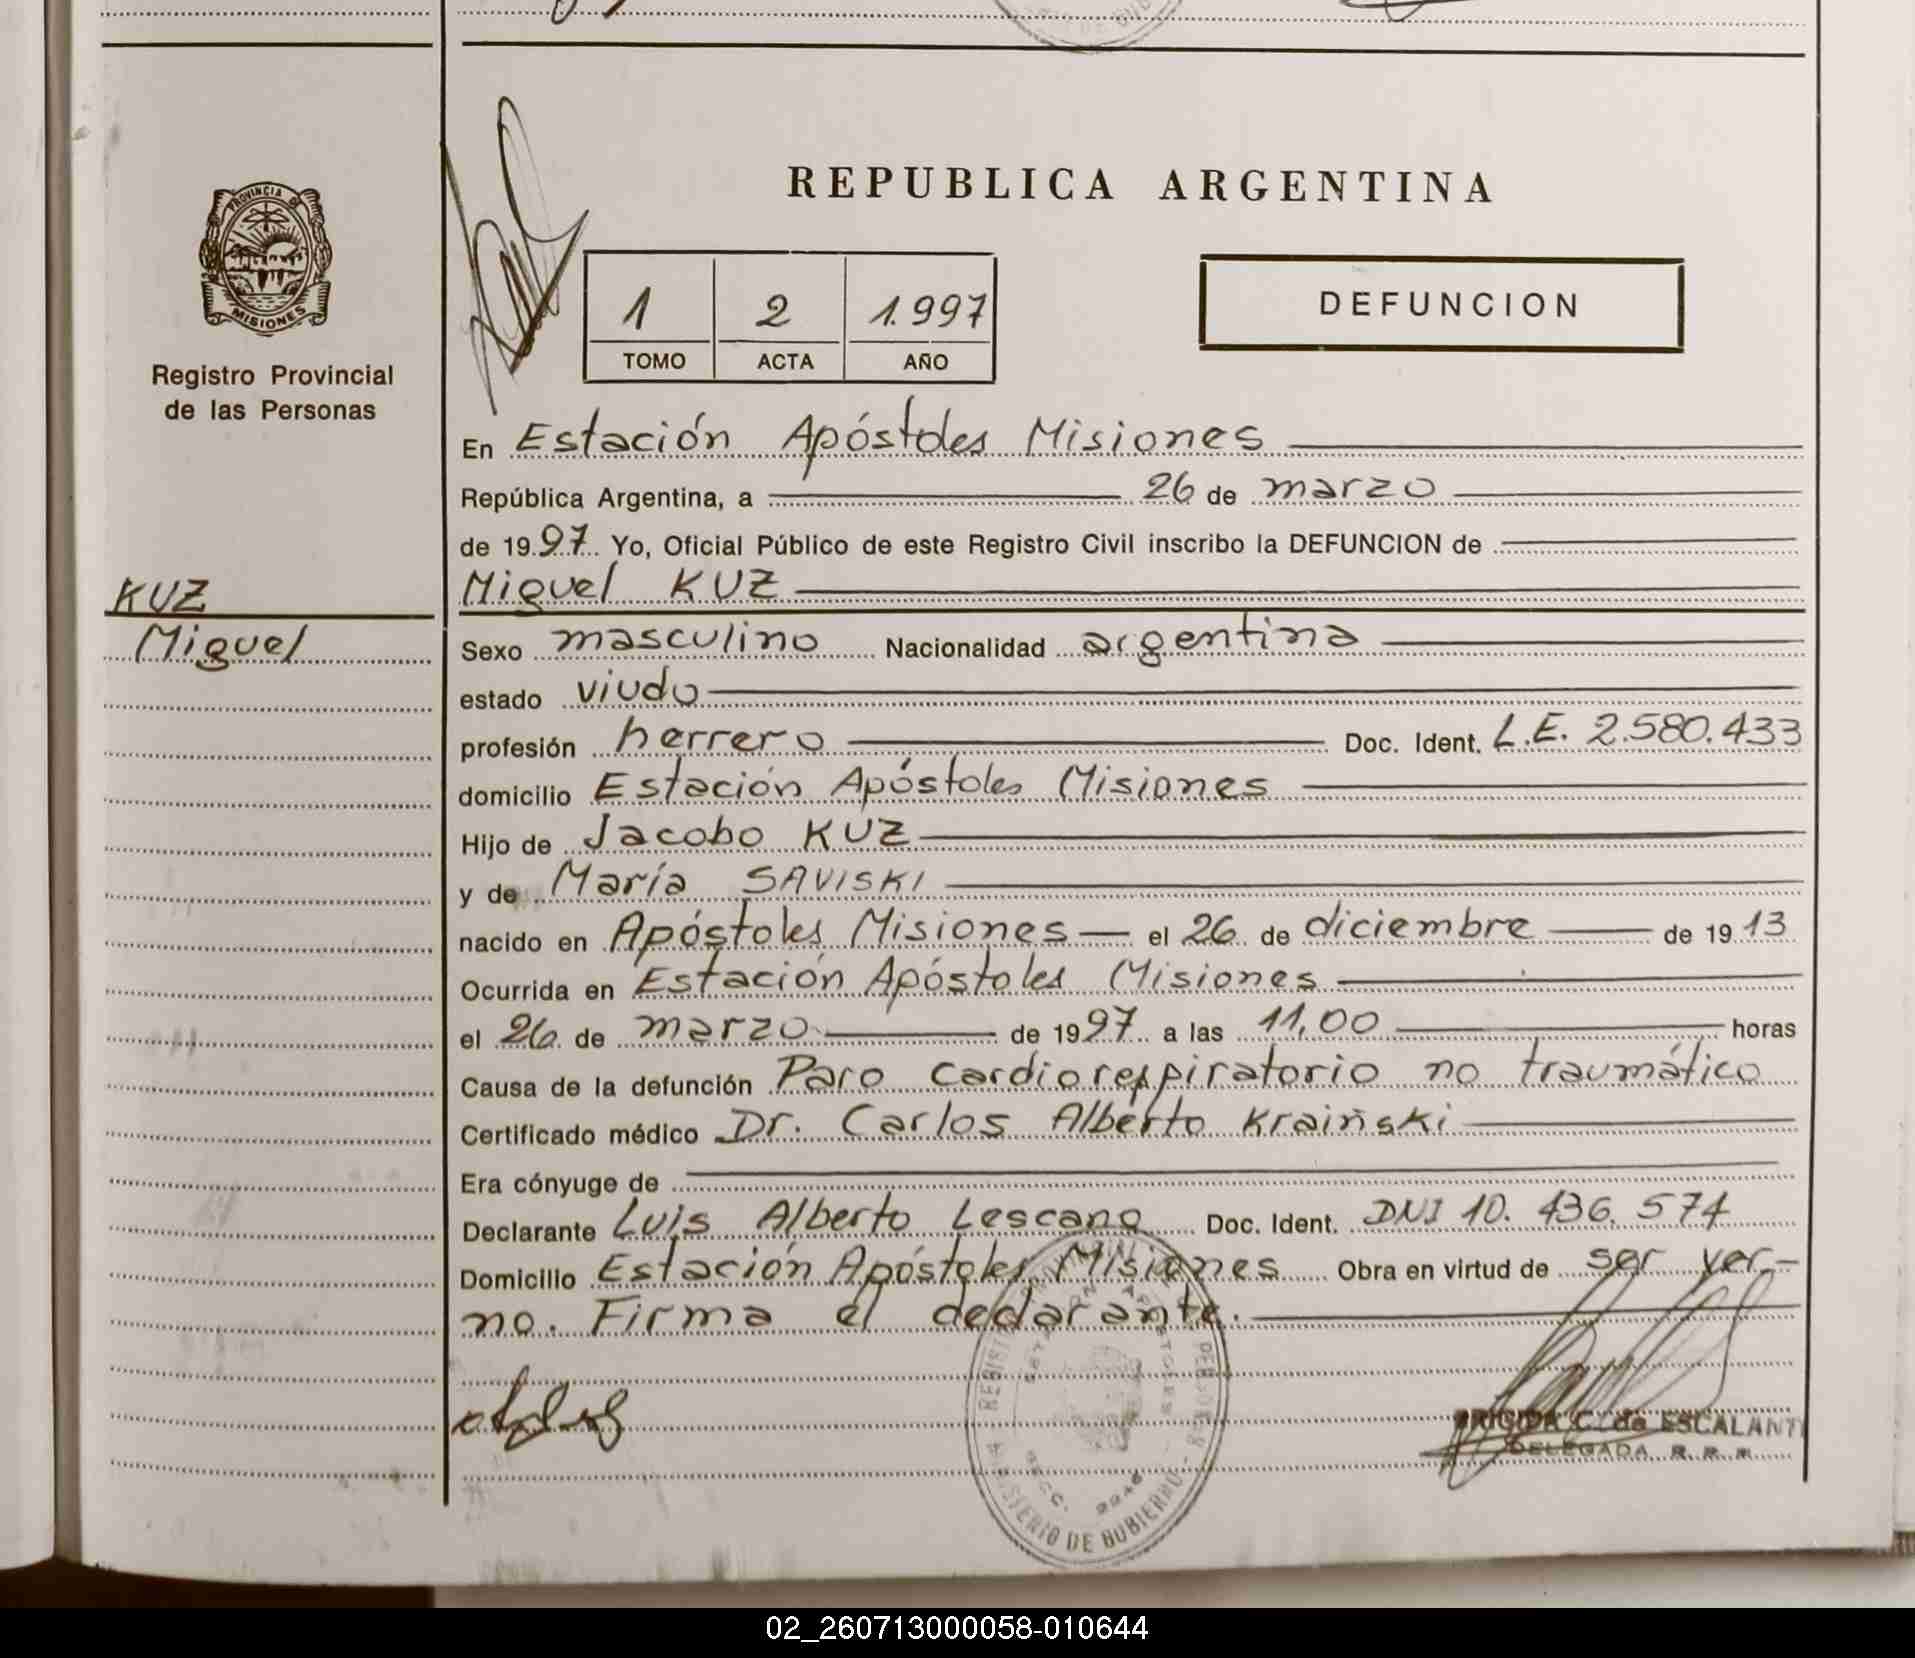 PROVINCIA DE
MISIONES
Registro Provincial
de las Personas
KUZ
Miguel
REPUBLICA ARGENTINA
1 2 1.997
TOMO ACTA AÑO
DEFUNCION
En Estación Apóstoles Misiones
República Argentina, a 26 de marzo
de 1997 Yo, Oficial Público de este Registro Civil inscribo la DEFUNCION de
Miguel KUZ
Sexo masculino Nacionalidad argentina
estado viudo
profesión herrero Doc. Ident. L.E. 2.580.433
domicilio Estación Apóstoles Misiones
Hijo de Jacobo KUZ
y de María SAVISKI
nacido en Apóstoles Misiones — el 26 de diciembre de 1913
Ocurrida en Estación Apóstoles Misiones
el 26 de marzo de 1997 a las 11,00 horas
Causa de la defunción Paro cardiorespiratorio no traumático
Certificado médico Dr. Carlos Alberto Kraiński
Era cónyuge de
Declarante Luis Alberto Lescano Doc. Ident. DNI 10.436.574
Domicilio Estación Apóstoles Misiones Obra en virtud de ser yer-
no. Firma el declarante.
MINISTERIO DE GOBIERNO
BRIGIDA C. de ESCALANTE
DELEGADA R. P.
02_260713000058-010644